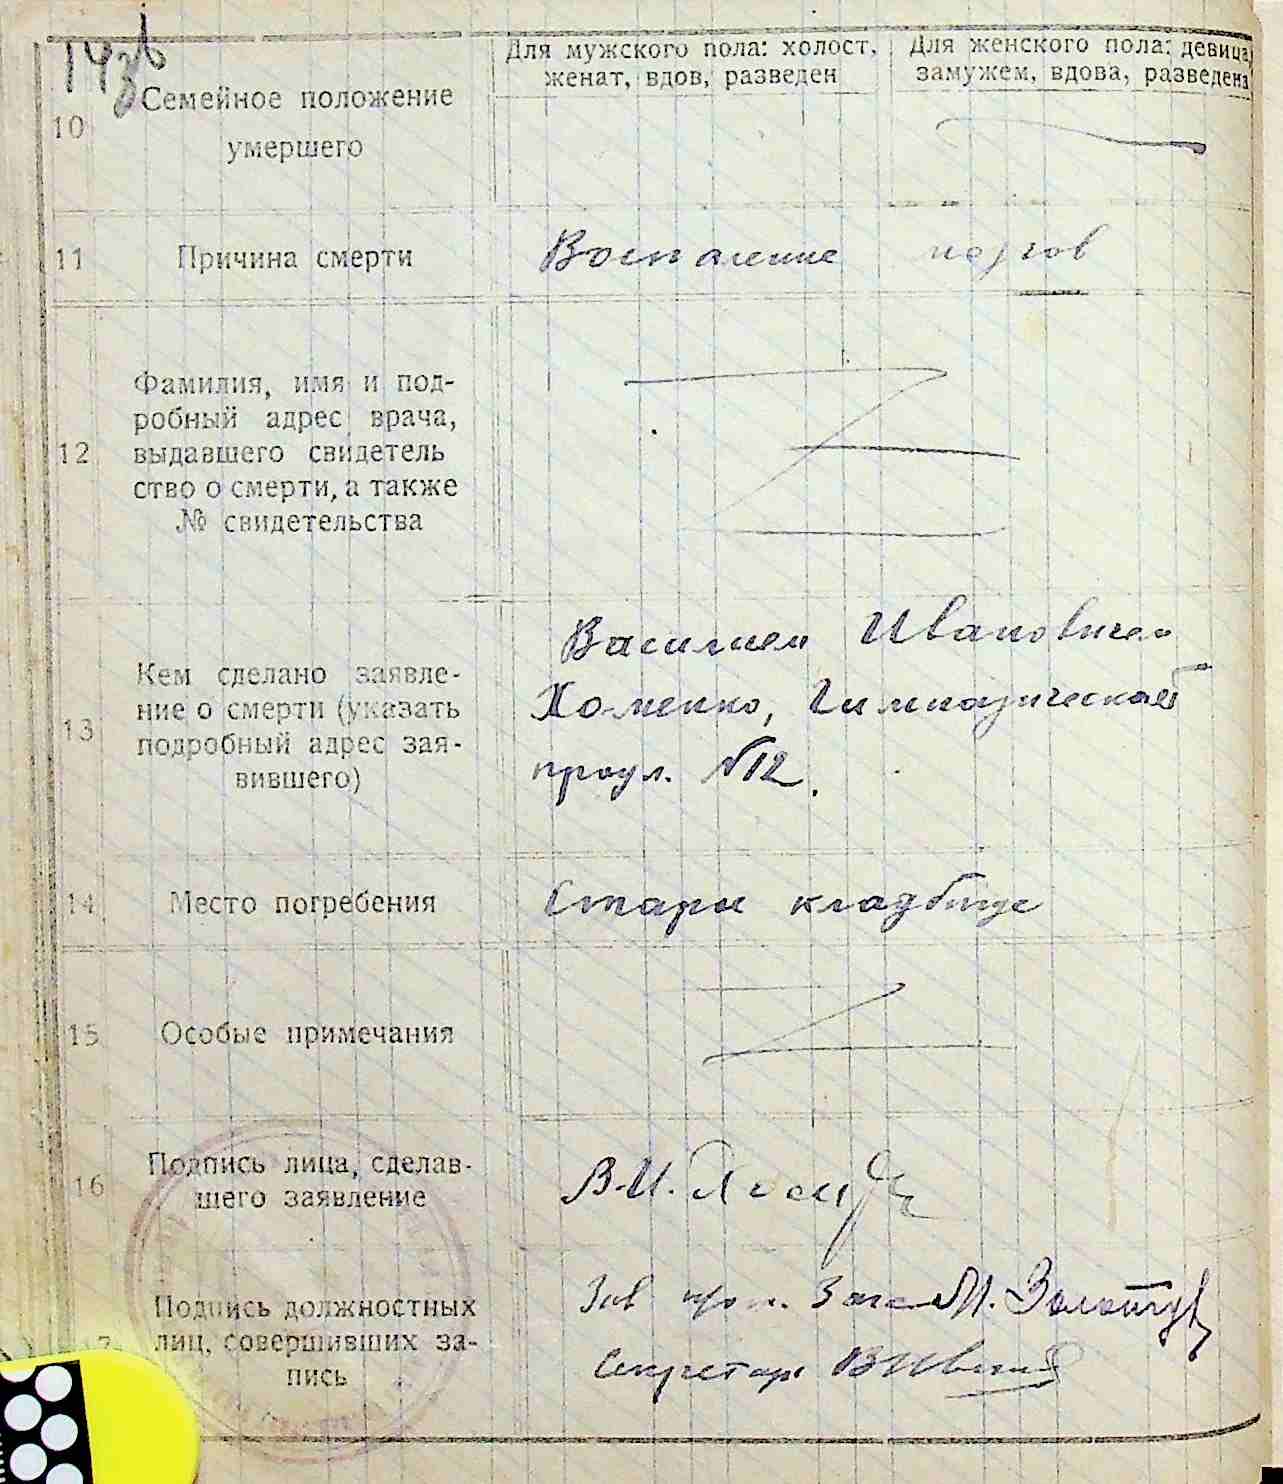 Для мужского пола: холост, женат, вдов, разведен
Для женского пола: девица, замужем, вдова, разведена
10
Семейное положение
умершего
11 Причина смерти Воспаление мозгов
12
Фамилия, имя и под-
робный адрес врача,
выдавшего свидетель
ство о смерти, а также
№ свидетельства
13
Кем сделано заявле-
ние о смерти (указать
подробный адрес зая-
вившего)
Василием Ивановичем
Хоменко, Гимназический
проул. №12.
14 Место погребения Старое кладбище
15 Особые примечания
16
Подпись лица, сделав-
шего заявление
В. И.
Подпись должностных
лиц, совершивших за-
пись
Зав
Секретарь